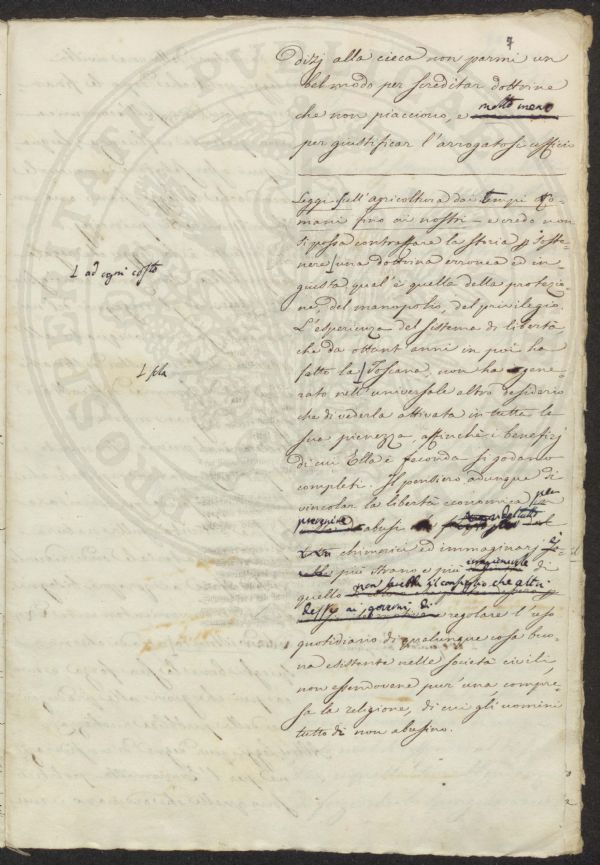 7
dizj alla cieca non parmi un
bel modo per screditar dottrine
che non piacciono, e molto meno
per giustificar l'arrogatosi uffizio
Leggi sull'agricoltura dai tempi Ro-
mani fino ai nostri - e credo non
si possa contraffare la storia p soste-
nere una dottrina erronea ed in-
giusta qual'è quella della protezio-
ne, del monopolio, del privilegio.
L ad ogni costo
L'esperienza del sistema di libertà
che da ottant'anni in poi ha
fatto la Toscana, non ha gene-
L sola
rato nell'universale altro desiderio
che di vederla attivata in tutta la
sua pienezza affinchè i benefizj
di cui Ella è feconda si godano
completi. Il pensiero adunque di
vincolar la libertà economica per
prevenire abusi
chimerici ed immaginarj è
più strano e più di
quello non sarebbe il consiglio che altri
desse ai governi di regolare l'uso
quotidiano di qualunque cosa buo-
na esistente nelle società civili
non essendovene pur'una, compre-
sa la religione, di cui gli uomini
tutto dì non abusino.